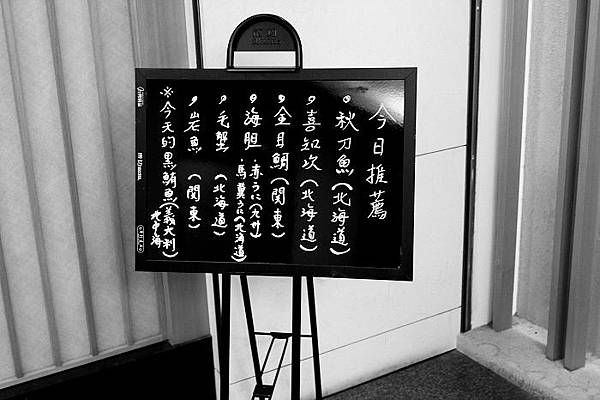 今日推薦
•秋刀魚(北海道)
•喜知次(北海道)
•金目鯛(関東)
•海胆•赤うに(九州)
•馬糞うに(北海道)
•毛蟹(北海道)
•岩魚(関東)
※今天的黒鮪魚(義大利)
地中海